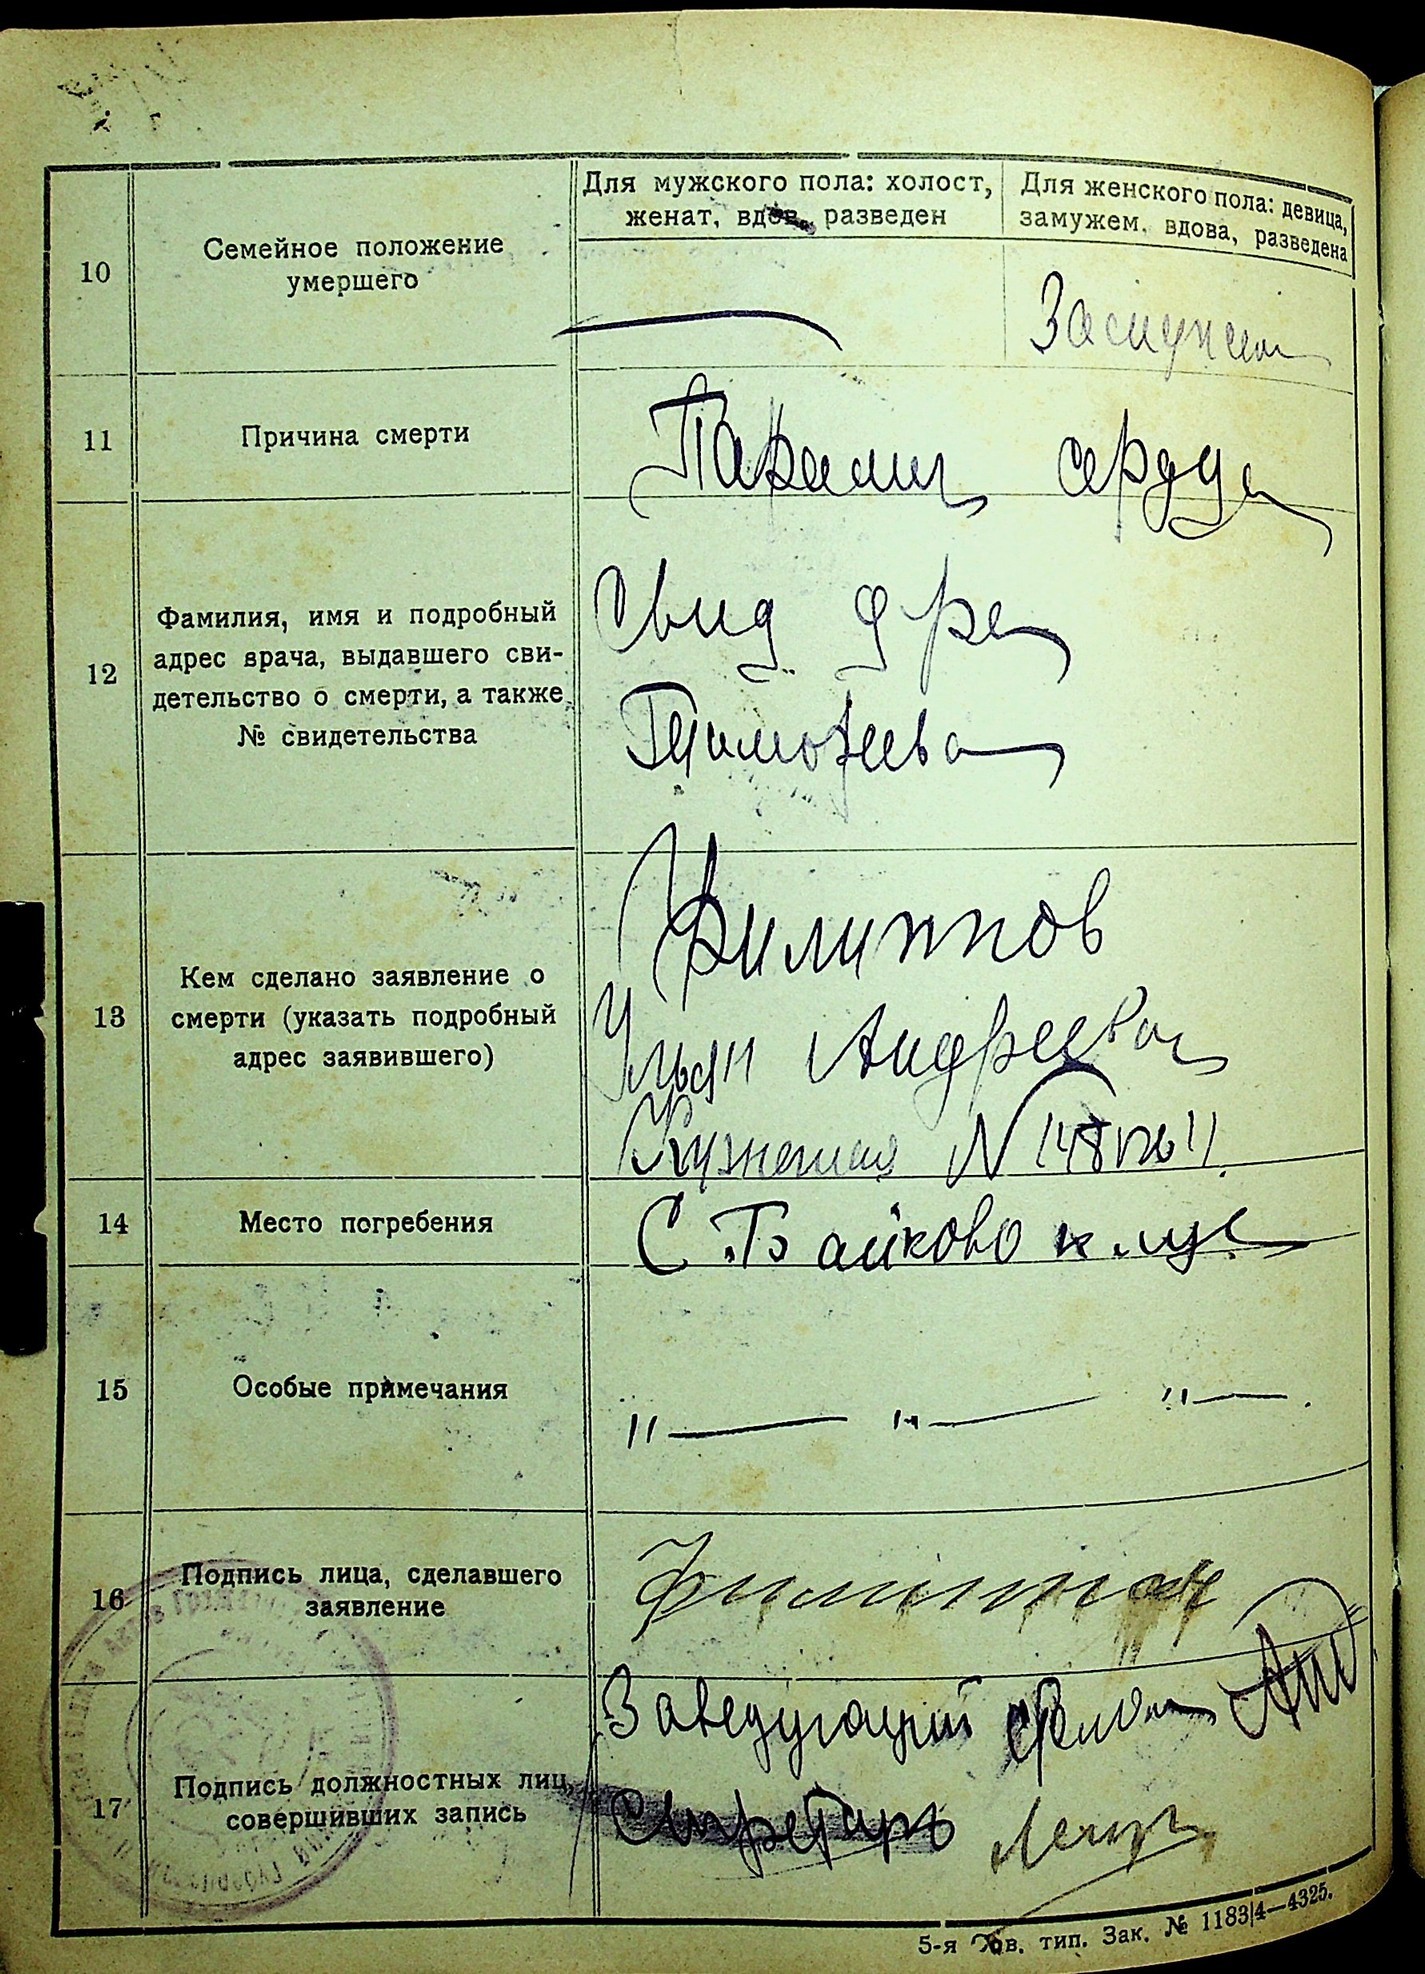 10
Семейное положение
умершего
Для мужского пола: холост,
женат, вдов, разведен
Для женского пола: девица,
замужем, вдова, разведена
Замужем
11
Причина смерти
Паралич сердца
12
Фамилия, имя и подробный
адрес врача, выдавшего сви-
детельство о смерти, а также
№ свидетельства
Свид д ра
Тимофеева
13
Кем сделано заявление о
смерти (указать подробный
адрес заявившего)
Филиппов
Ульян Андреевич
Кузнечная N 148 кв 11
14
Место погребения
С. Байково кл.
15
Особые примечания
"— "— "—.
16
Подпись лица, сделавшего
заявление
Филиппов
17
Подпись должностных лиц,
совершивших запись
Заведующий
Секретарь
5-я Хов. тип. Зак. № 1183|4—4325.